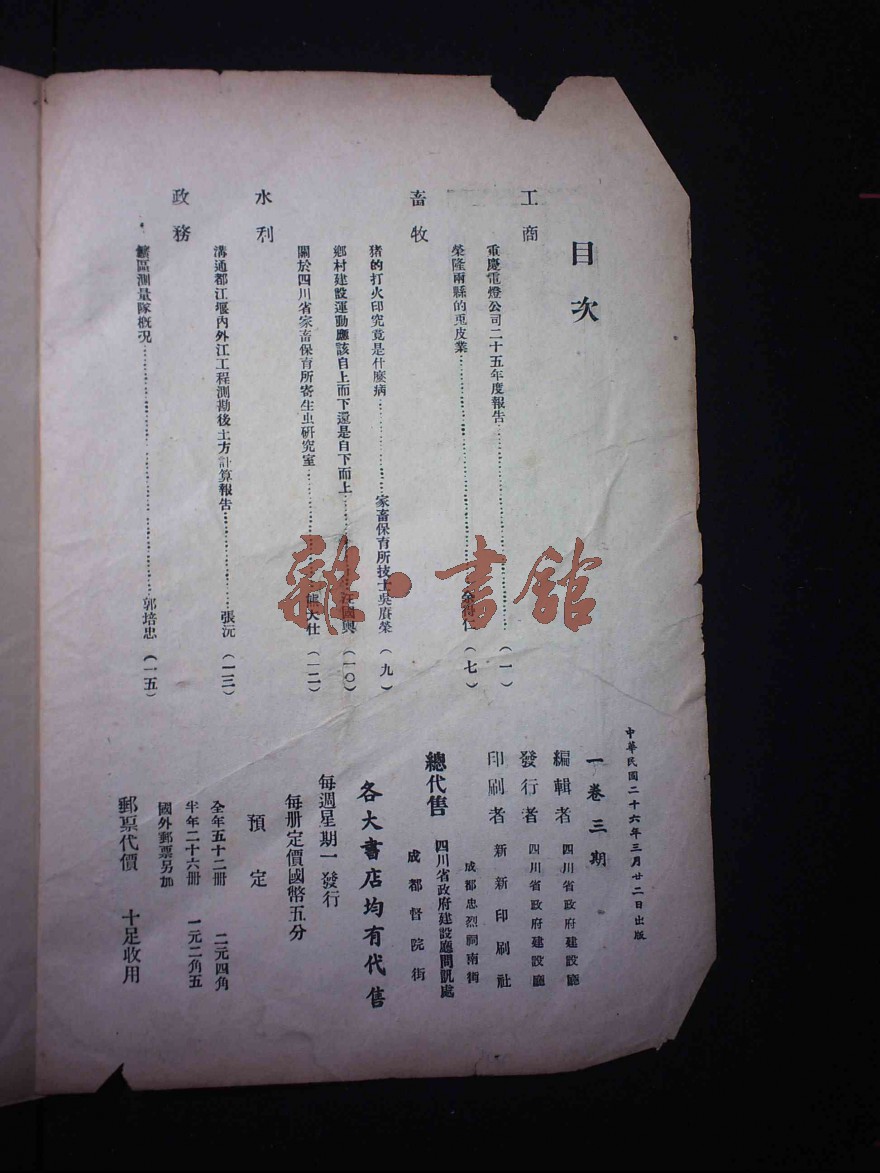 目次
工商
重慶電燈公司二十五年度報告……（一）
榮隆兩縣的兎皮業……仁（七）
畜牧
猪的打火印究竟是什麼病……家畜保育所技士吳賡榮（九）
鄉村建設運動應該自上而下還是自下而上……汪國輿（一〇）
關於四川省家畜保育所寄生虫研究室……熊大仕（一二）
水利
溝通都江堰內外江工程測勘後土方計算報告……張沅（一三）
政務
區測量隊概况……郭培忠（一五）
中華民國二十六年三月廿二日出版
一卷三期
編輯者 四川省政府建設廳
發行者 四川省政府建設廳
印刷者 新新印刷社
成都忠烈祠南街
總代售 四川省政府建設廳問訊處
成都督院街
各大書店均有代售
每週星期一發行
每册定價國幣五分
預定
全年五十二册 二元四角
半年二十六册 一元二角五
國外郵票另加
郵票代價 十足收用
雜·書館